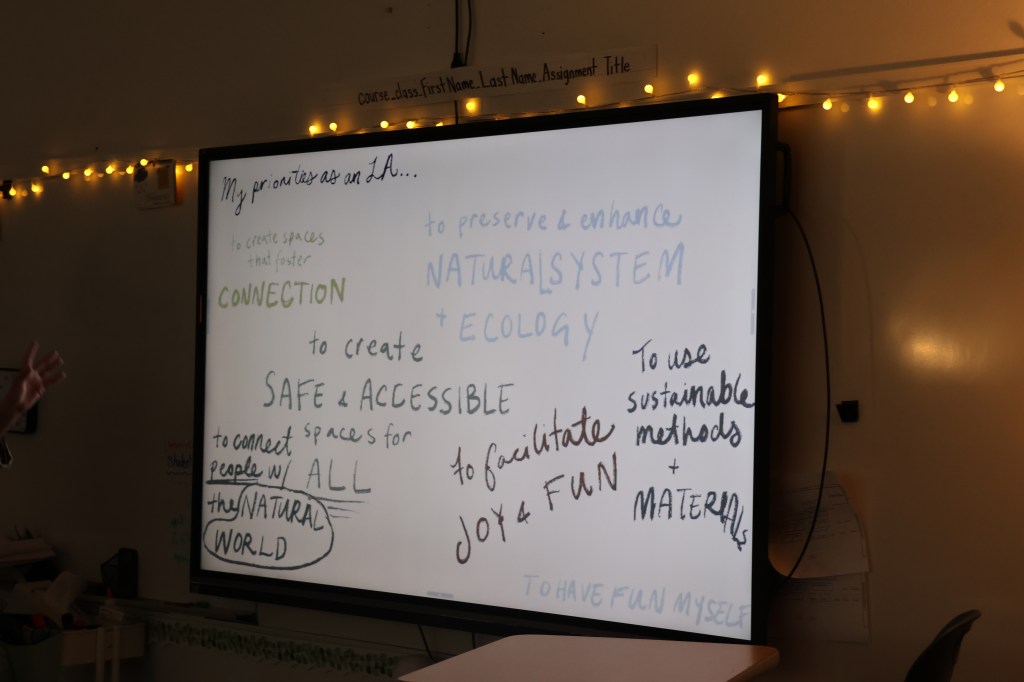 course_class_FirstName_Last Name_Assignment Title
My priorities as an LA...
to create spaces
that foster
CONNECTION
to preserve & enhance
NATURAL SYSTEM
+ ECOLOGY
to create
SAFE & ACCESSIBLE
spaces for
ALL
to connect
people w/
the NATURAL
WORLD
to facilitate
JOY & FUN
To use
sustainable
methods
+
MATERIALS
TO HAVE FUN MYSELF